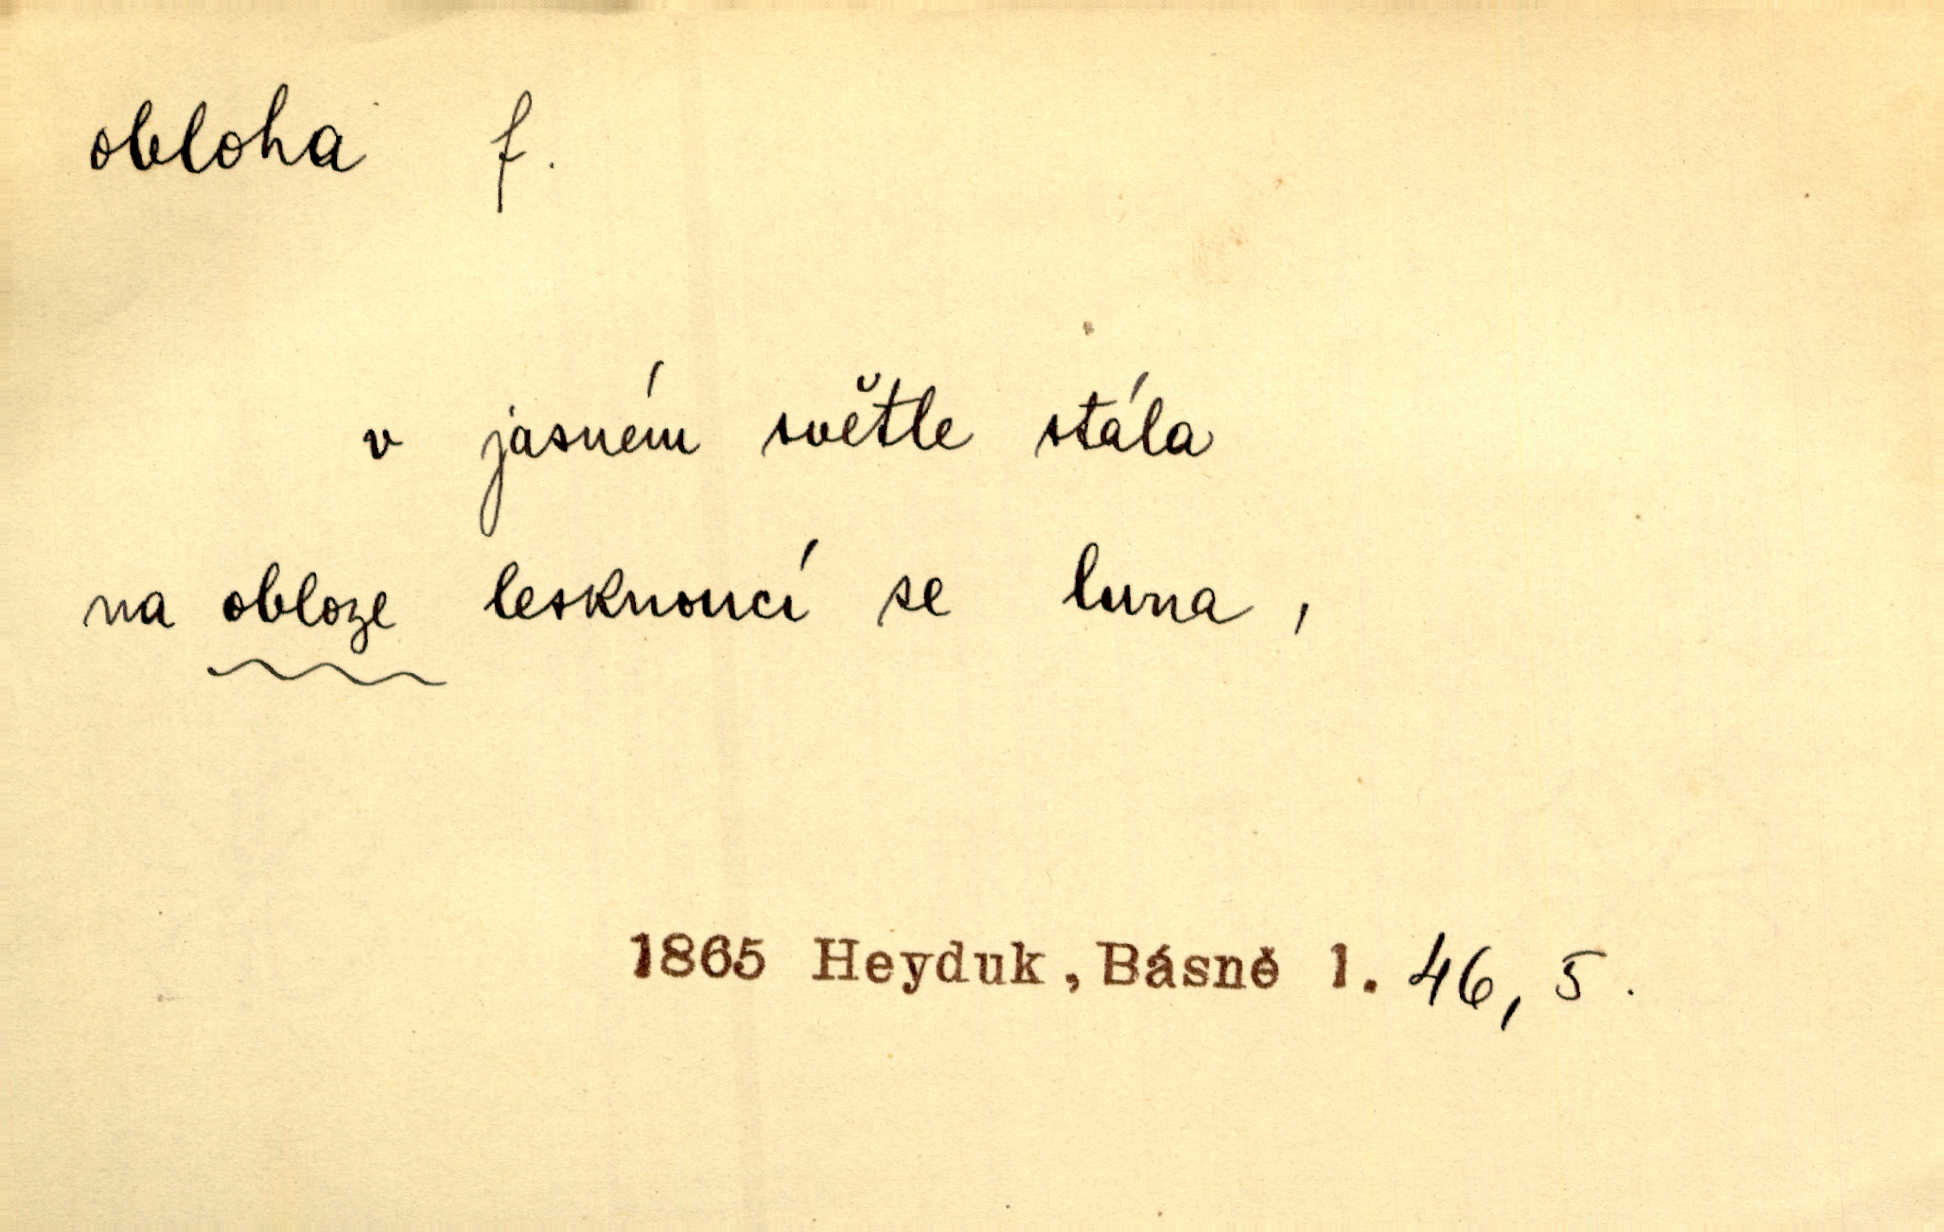 obloha f.
v jasném světle stála
na obloze lesknoucí se luna,
1865 Heyduk, Básně 1. 46, 5.